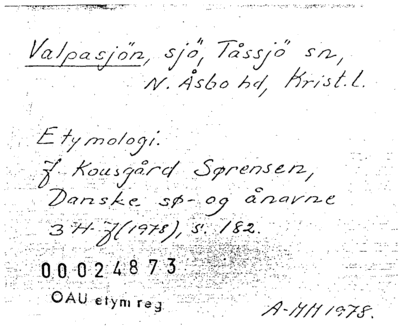 Valpasjön, sjö, Tåssjö sn,
N. Åsbo hd, Krist.l.
Etymologi.
J. Kousgård Sørensen,
Danske sø- og ånavne
3 H-J (1978), s. 182.
00024873
OAU etym reg
A-MH 1978.